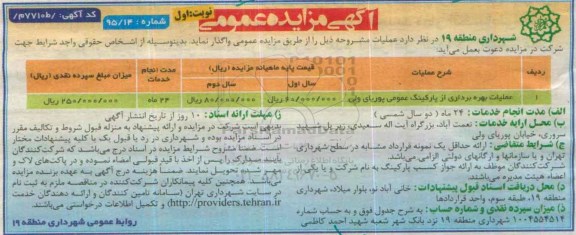 کد آگهی: /م۷۷۱۰b/
نوبت اول
آگهی مزایده عمومی
شماره : ۹۵/۱۴
شهرداری منطقه ۱۹ در نظر دارد عملیات مشروحه ذیل را از طریق مزایده عمومی واگذار نماید. بدینوسیله از اشخاص حقوقی واجد شرایط جهت
شرکت در مزایده دعوت بعمل می‌آید.
ردیف
شرح عملیات
قیمت پایه ماهیانه مزایده (ریال)
سال اول
سال دوم
مدت انجام خدمات
میزان مبلغ سپرده نقدی (ریال)
۱
عملیات بهره برداری از پارکینگ عمومی پوریای ولی
۶۰/۰۰۰/۰۰۰ ریال
۸۰/۰۰۰/۰۰۰ ریال
۲۴ ماه
۲۵۰/۰۰۰/۰۰۰ ریال
الف) مدت انجام خدمات: ۲۴ ماه ( دو سال شمسی )
ب) محل ارایه خدمات : نعمت آباد، بزرگراه آیت اله سعیدی،
سروری، خیابان پوریای ولی
ج) شرایط متقاضی: ارائه حداقل یک نمونه قرارداد مشابه در سطح شهرداری
تهران و یا سازمانها و ارگانهای دولتی الزامی می‌باشد.
شرکت کنندگان موظف به ارائه جواز کسب پارکینگ به نام شرکت و یا یکی از
اعضاء هیئت مدیره می‌باشند.
د) محل دریافت اسناد قبول پیشنهادات : خانی آباد نو، بلوار میلاد، شهرداری
منطقه ۱۹، طبقه سوم، واحد قراردادها
ذ) میزان سپرده نقدی و شماره حساب : به شرح جدول فوق و به حساب شماره
۱۰۰۴۵۵۴۵۱۴ شهرداری منطقه ۱۹ نزد بانک شهر شعبه شهید احمد کاظمی
ز) مهلت ارائه اسناد : ۱۰ روز از تاریخ انتشار آگهی
شرکت در مزایده و ارائه پیشنهاد به منزله قبول شروط و تکالیف مقرر
در اسناد مزایده بوده و شهرداری در رد یا قبول یک یا کلیه پیشنهادات مختار
است. ضمنا مشروح شرایط مزایده در اسناد درج می‌باشد که شرکت‌کنندگان
بایستی اسناد را پس از اخذ با قید قبولی امضاء نموده و در پاکت‌های لاک و
مهر شده تحویل نمایند. ضمنا هزینه درج آگهی به عهده برنده مزایده
می‌باشد. همچنین کلیه پیمانکاران شرکت‌کننده در مناقصه ملزم به ثبت نام
در سایت شهرداری تهران (سامانه تامین کنندگان و ارائه دهندگان خدمت
http://providers.tehran.ir) و تکمیل اطلاعات درخواستی می‌باشند.
روابط عمومی شهرداری منطقه ۱۹